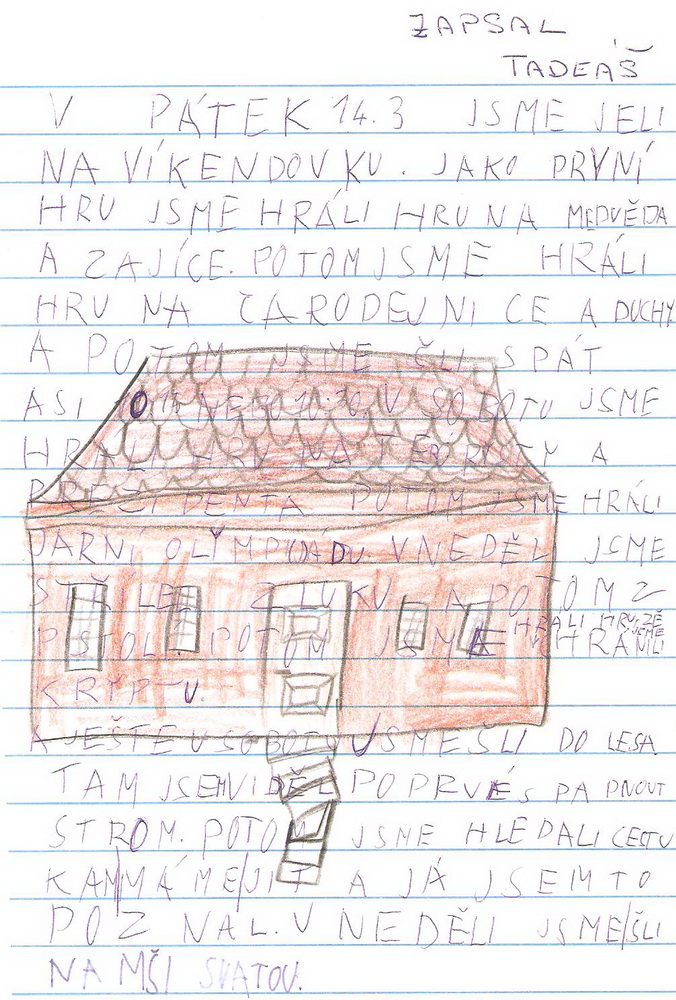 ZAPSAL
TADEÁŠ
V PÁTEK 14.3 JSME JELI
NA VÍKENDOVKU. JAKO PRVNÍ
HRU JSME HRÁLI HRU NA MEDVĚDA
A ZAJÍCE. POTOM JSME HRÁLI
HRU NA ČARODEJNICE A DUCHY
A POTOM JSME ČLI SPÁT
ASI NEBO 10:30 V SOBOTU JSME
HRÁLI HRU NA TERORISTY A
PREZIDENTA POTOM JSME HRÁLI
JARNÍ OLYMPIÁDU. V NEDĚLI JSME
STŘÍLELI Z LUKU A POTOM Z
PISTOLÍ. POTOM JSME HRÁLI HRU, ŽE JSME HRÁNILI
KRYPTU.
A JEŠTE V SOBOTU JSME ŠLI DO LESA
TAM JSEM VIDĚL POPRVÉ SPADNOUT
STROM. POTOM JSME HLEDALI CESTU
KAM MÁME JÍT A JÁ JSEM TO
POZNAL. V NEDĚLI JSME ŠLI
NA MŠI SVATOU.